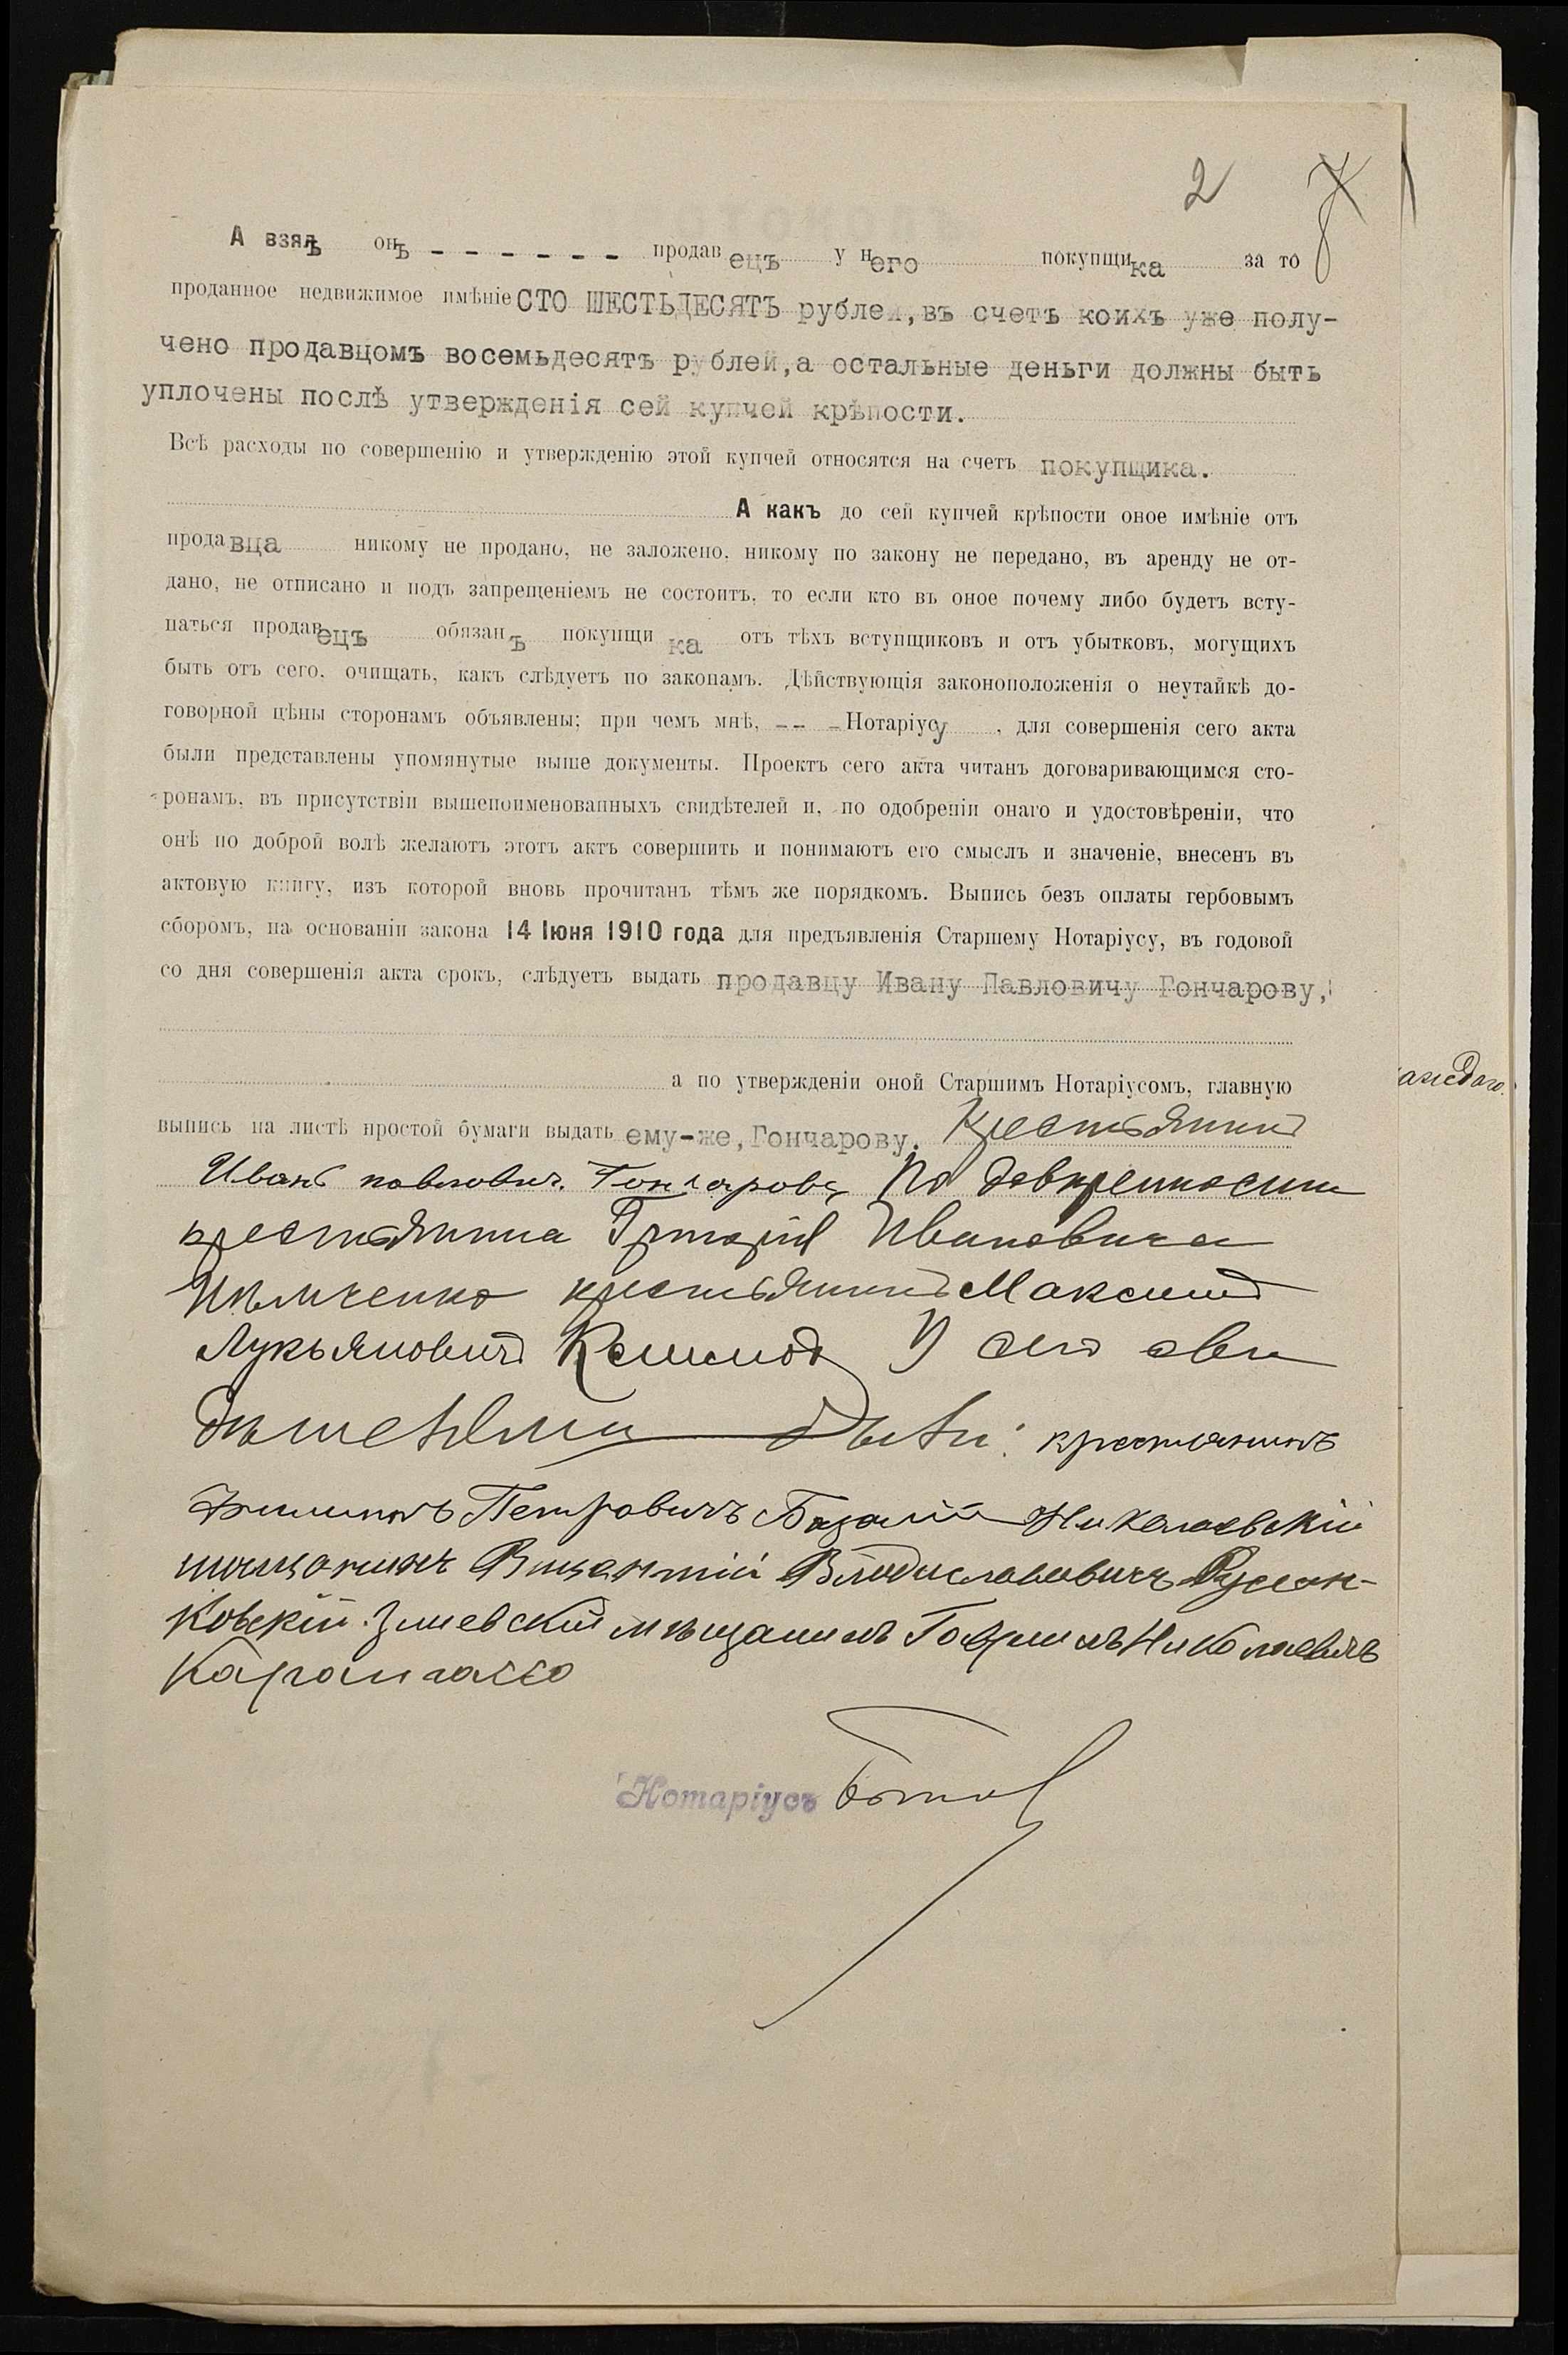 2
А взялъ онъ - - - - - - продавецъ у него покупщика за то
проданное недвижимое имѣніе СТО ШЕСТЬДЕСЯТЪ рублей, въ счетъ коихъ уже полу-
чено продавцомъ восемьдесятъ рублей, а остальные деньги должны быть
уплочены послѣ утвержденія сей купчей крѣпости.
Всѣ расходы по совершенію и утвержденію этой купчей относятся на счетъ покупщика.
А какъ до сей купчей крѣпости оное имѣніе отъ
продавца никому не продано, не заложено, никому по закону не передано, въ аренду не от-
дано, не отписано и подъ запрещеніемъ не состоитъ, то если кто въ оное почему либо будетъ всту-
паться продавецъ обязанъ покупщика отъ тѣхъ вступщиковъ и отъ убытковъ, могущихъ
быть отъ сего, очищать, какъ слѣдуетъ по законамъ. Дѣйствующія законоположенія о неутайкѣ до-
говорной цѣны сторонамъ объявлены; при чемъ мнѣ, -- - Нотаріусу, для совершенія сего акта
были представлены упомянутые выше документы. Проектъ сего акта читанъ договаривающимся сто-
ронамъ, въ присутствіи вышепоименованныхъ свидѣтелей и, по одобреніи онаго и удостовѣреніи, что
онѣ по доброй волѣ желаютъ этотъ актъ совершить и понимаютъ его смыслъ и значеніе, внесенъ въ
актовую книгу, изъ которой вновь прочитанъ тѣмъ же порядкомъ. Выпись безъ оплаты гербовымъ
сборомъ, на основаніи закона 14 Іюня 1910 года для предъявленія Старшему Нотаріусу, въ годовой
со дня совершенія акта срокъ, слѣдуетъ выдать продавцу Ивану Павловичу Гончарову,
а по утвержденіи оной Старшимъ Нотаріусомъ, главную
выпись на листѣ простой бумаги выдать ему-же, Гончарову. Крестьянинъ
Иванъ павлович. Гончаровъ По довѣренности
крестьянина Григорія Ивановича
крестьянинъ Максимъ
Лукьяновичъ У сего сви
дѣтелями были: крестьянинъ
Петровичъ Николаевскій
мѣщанинъ Викентій Владиславовичъ Русан-
ковскій. Зміевскій мѣщанинъ Гавриилъ Николаевичъ
Нотаріусъ